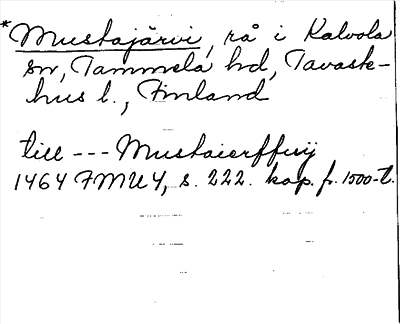 *Mustajärvi, rå i Kalvola
sn, Tammela hd, Tavaste-
hus l., Finland
till --- Mustaierffwij
1464 FMU 4, s. 222. kop. fr. 1500-t.